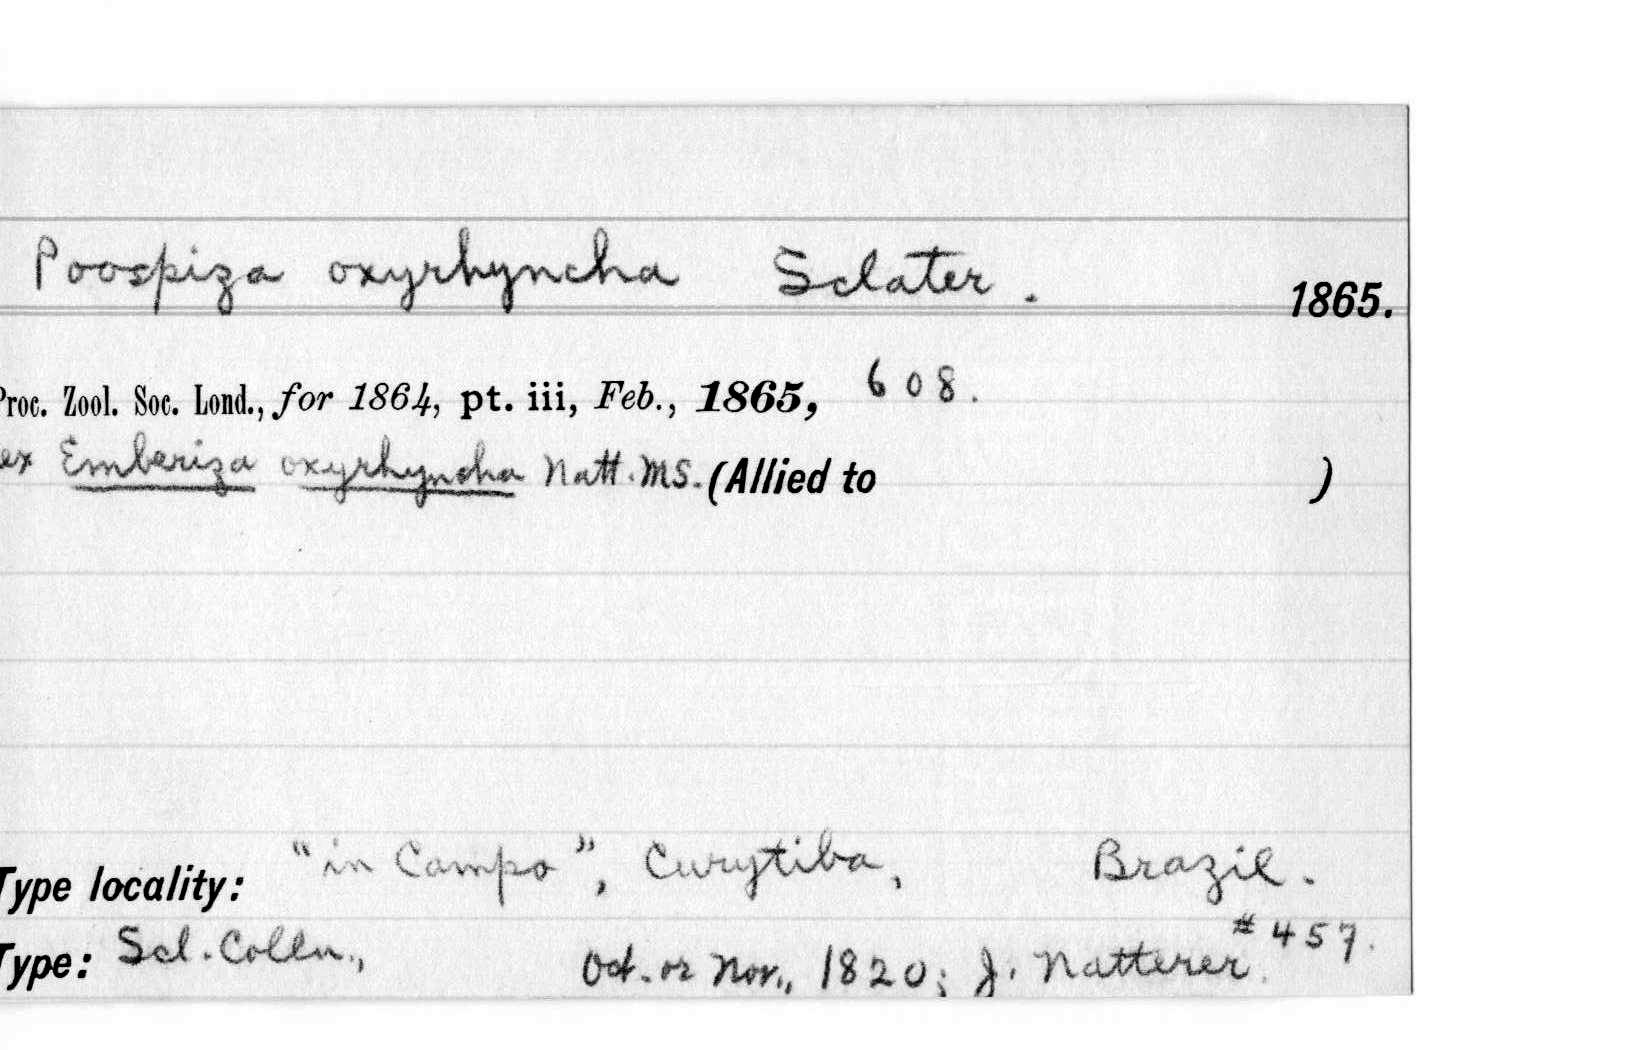 Poospiza oxyrhyncha Sclater. 1865.
Proc. Zool. Soc. Lond., for 1864, pt. iii, Feb., 1865, 608.
ex Emberiza oxyrhyncha Natt. MS. (Allied to )
Type locality: "in Campo", Curytiba, Brazil.
Type: Scl. Colln., Oct. or Nov., 1820; J. Natterer. #457.